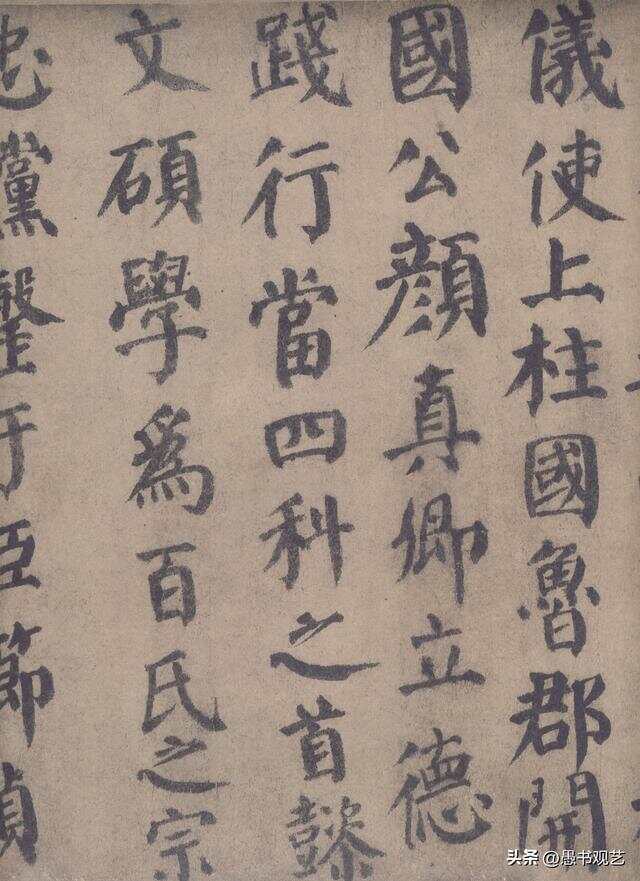 儀使上柱國魯郡開
國公顏真卿立德
踐行當四科之首懿
文碩學爲百氏之宗
忠讜罄于臣節貞
头条 @愚书观艺